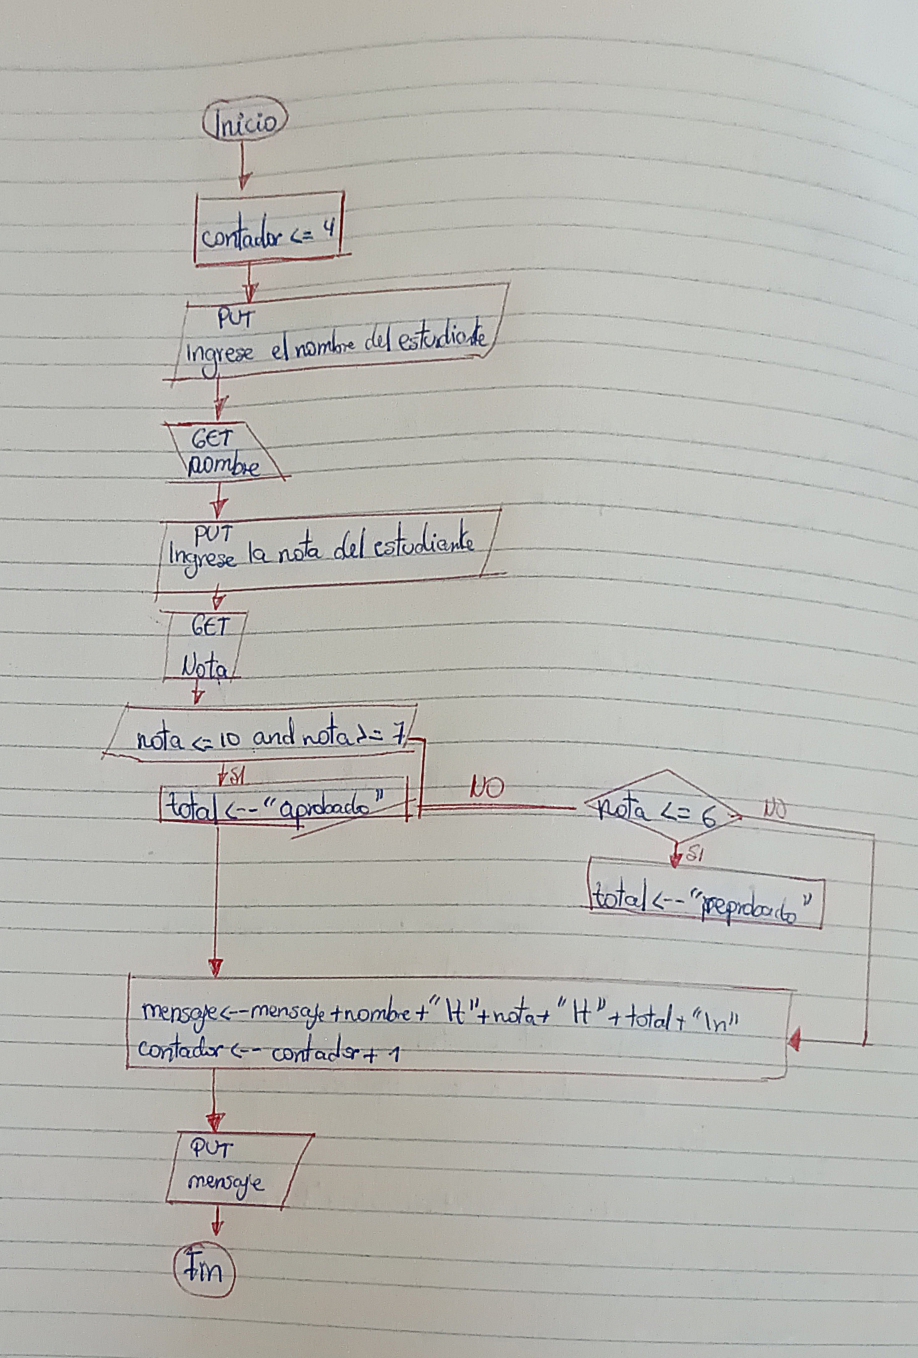 Inicio
contador <= 4
PUT
Ingrese el nombre del estudiante
GET
nombre
PUT
Ingrese la nota del estudiante
GET
Nota
nota <= 10 and nota >= 7
SI
total <-- "aprobado"
NO
nota <= 6
NO
SI
total <-- "reprobado"
mensaje <-- mensaje + nombre + "\t" + nota + "\t" + total + "\n"
contador <-- contador + 1
PUT
mensaje
Fin